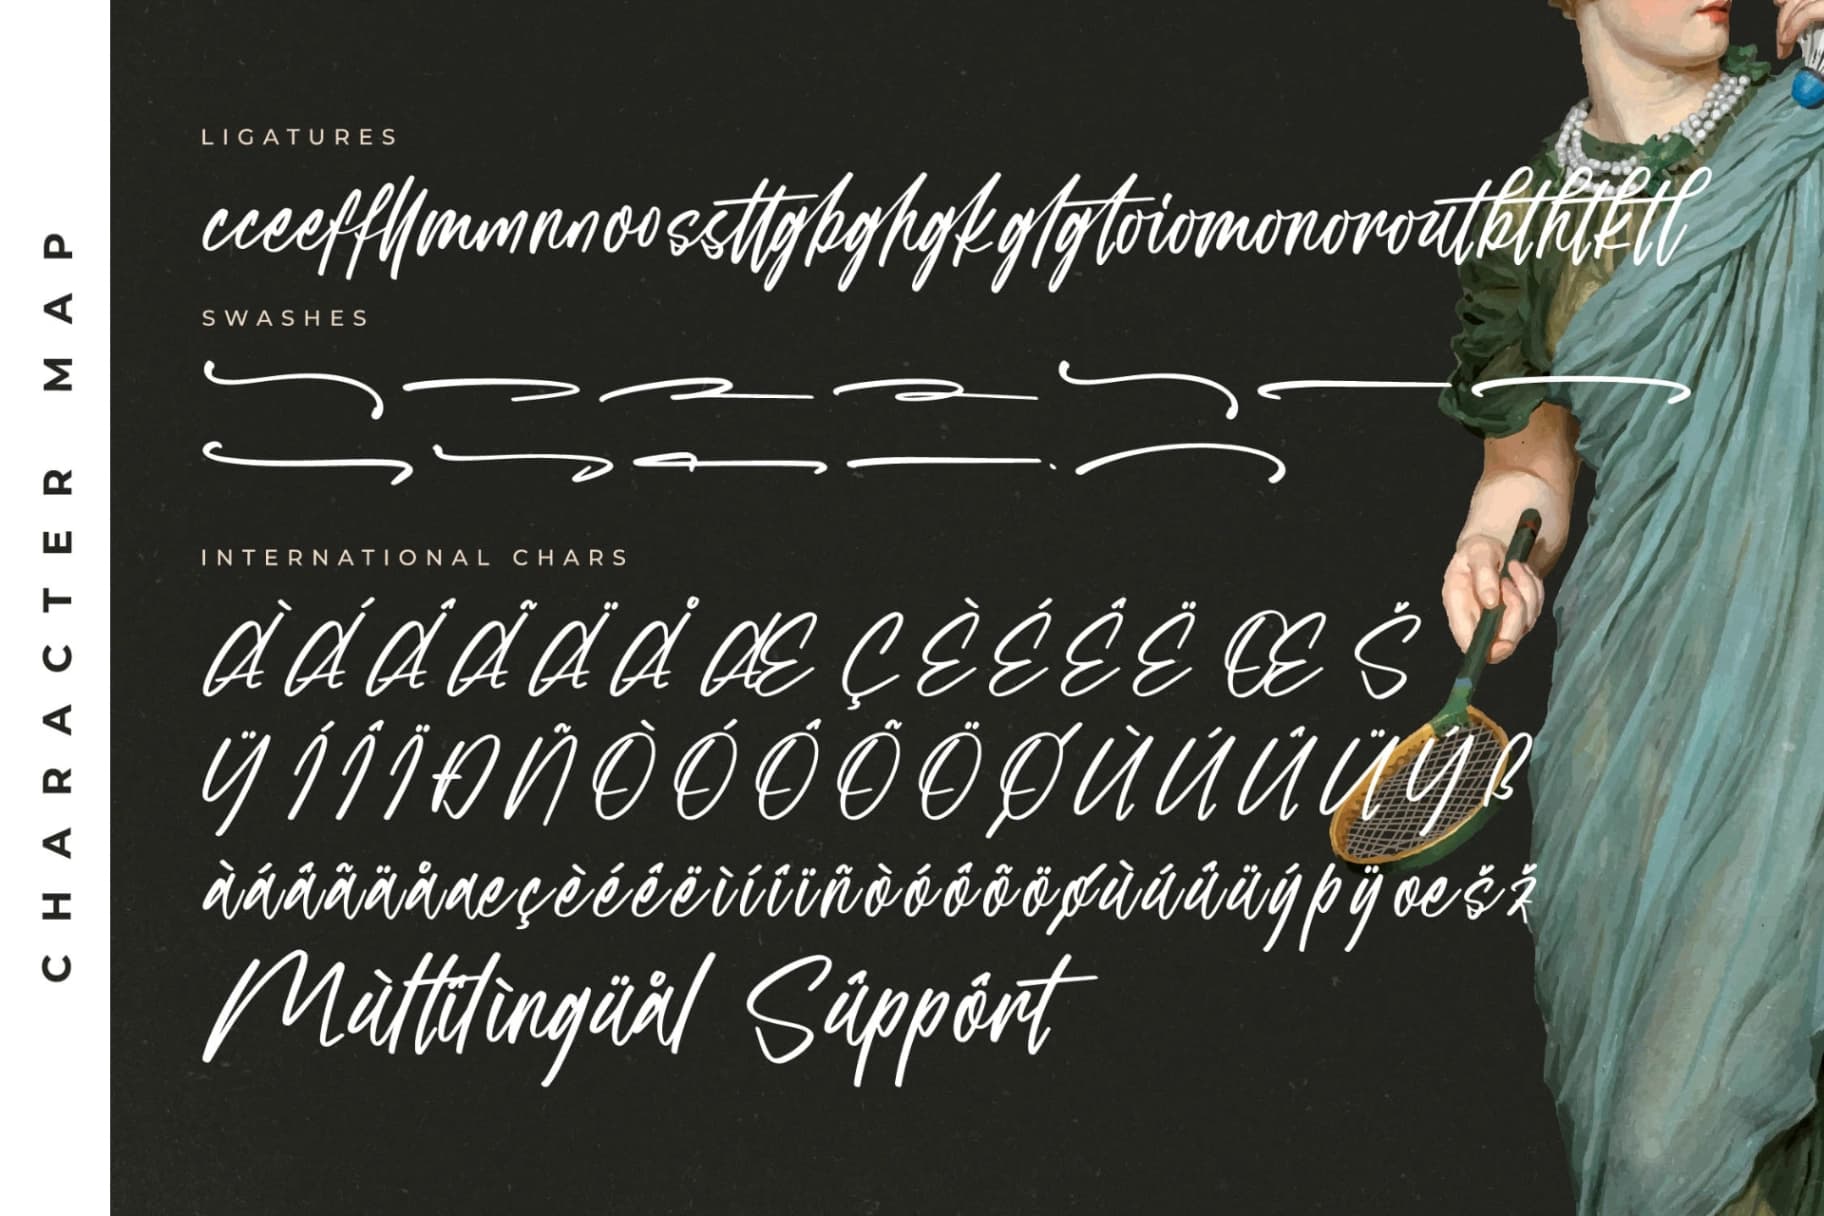 CHARACTER MAP
LIGATURES
cceeffllmmnnoossttgbghgkglgtoiomonoroutbthtktl
SWASHES
INTERNATIONAL CHARS
ÀÁÂÃÄÅÆÇÈÉÊËŒŠ
ŸÍÎÏÐÑÒÓÔÕÖØÙÚÛÜÝß
àáâãäåæçèéêëìíîïñòóôõöøùúûüýþÿœšž
Mùltîlìngüål Sûppôrt